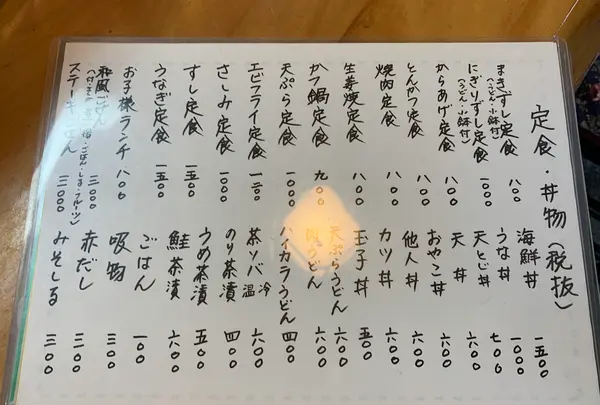 定食・丼物(税抜)
まきずし定食 八〇〇
(うどん・小鉢付)
にぎりずし定食 一〇〇〇
(うどん・小鉢付)
からあげ定食 八〇〇
とんかつ定食 八〇〇
焼肉定食 八〇〇
生姜焼定食 八〇〇
カツ鍋定食 九〇〇
天ぷら定食 一〇〇〇
エビフライ定食
さしみ定食 一〇〇〇
すし定食 一五〇〇
うなぎ定食 一五〇〇
お子様ランチ 八〇〇
和風ごぜん 三〇〇〇
ごはん・しる・フルーツ)
ステーキごぜん 三〇〇〇
海鮮丼 一五〇〇
うな丼 一〇〇〇
天とじ丼 七〇〇
天丼 六〇〇
おやこ丼 六〇〇
他人丼 六〇〇
カツ丼 六〇〇
玉子丼 五〇〇
天ぷらうどん 六〇〇
肉うどん 六〇〇
ハイカラうどん 四〇〇
茶ソバ 冷 温 六〇〇
のり茶漬 四〇〇
うめ茶漬 五〇〇
鮭茶漬 六〇〇
ごはん 一〇〇
吸物 三〇〇
赤だし 三〇〇
みそしる 三〇〇